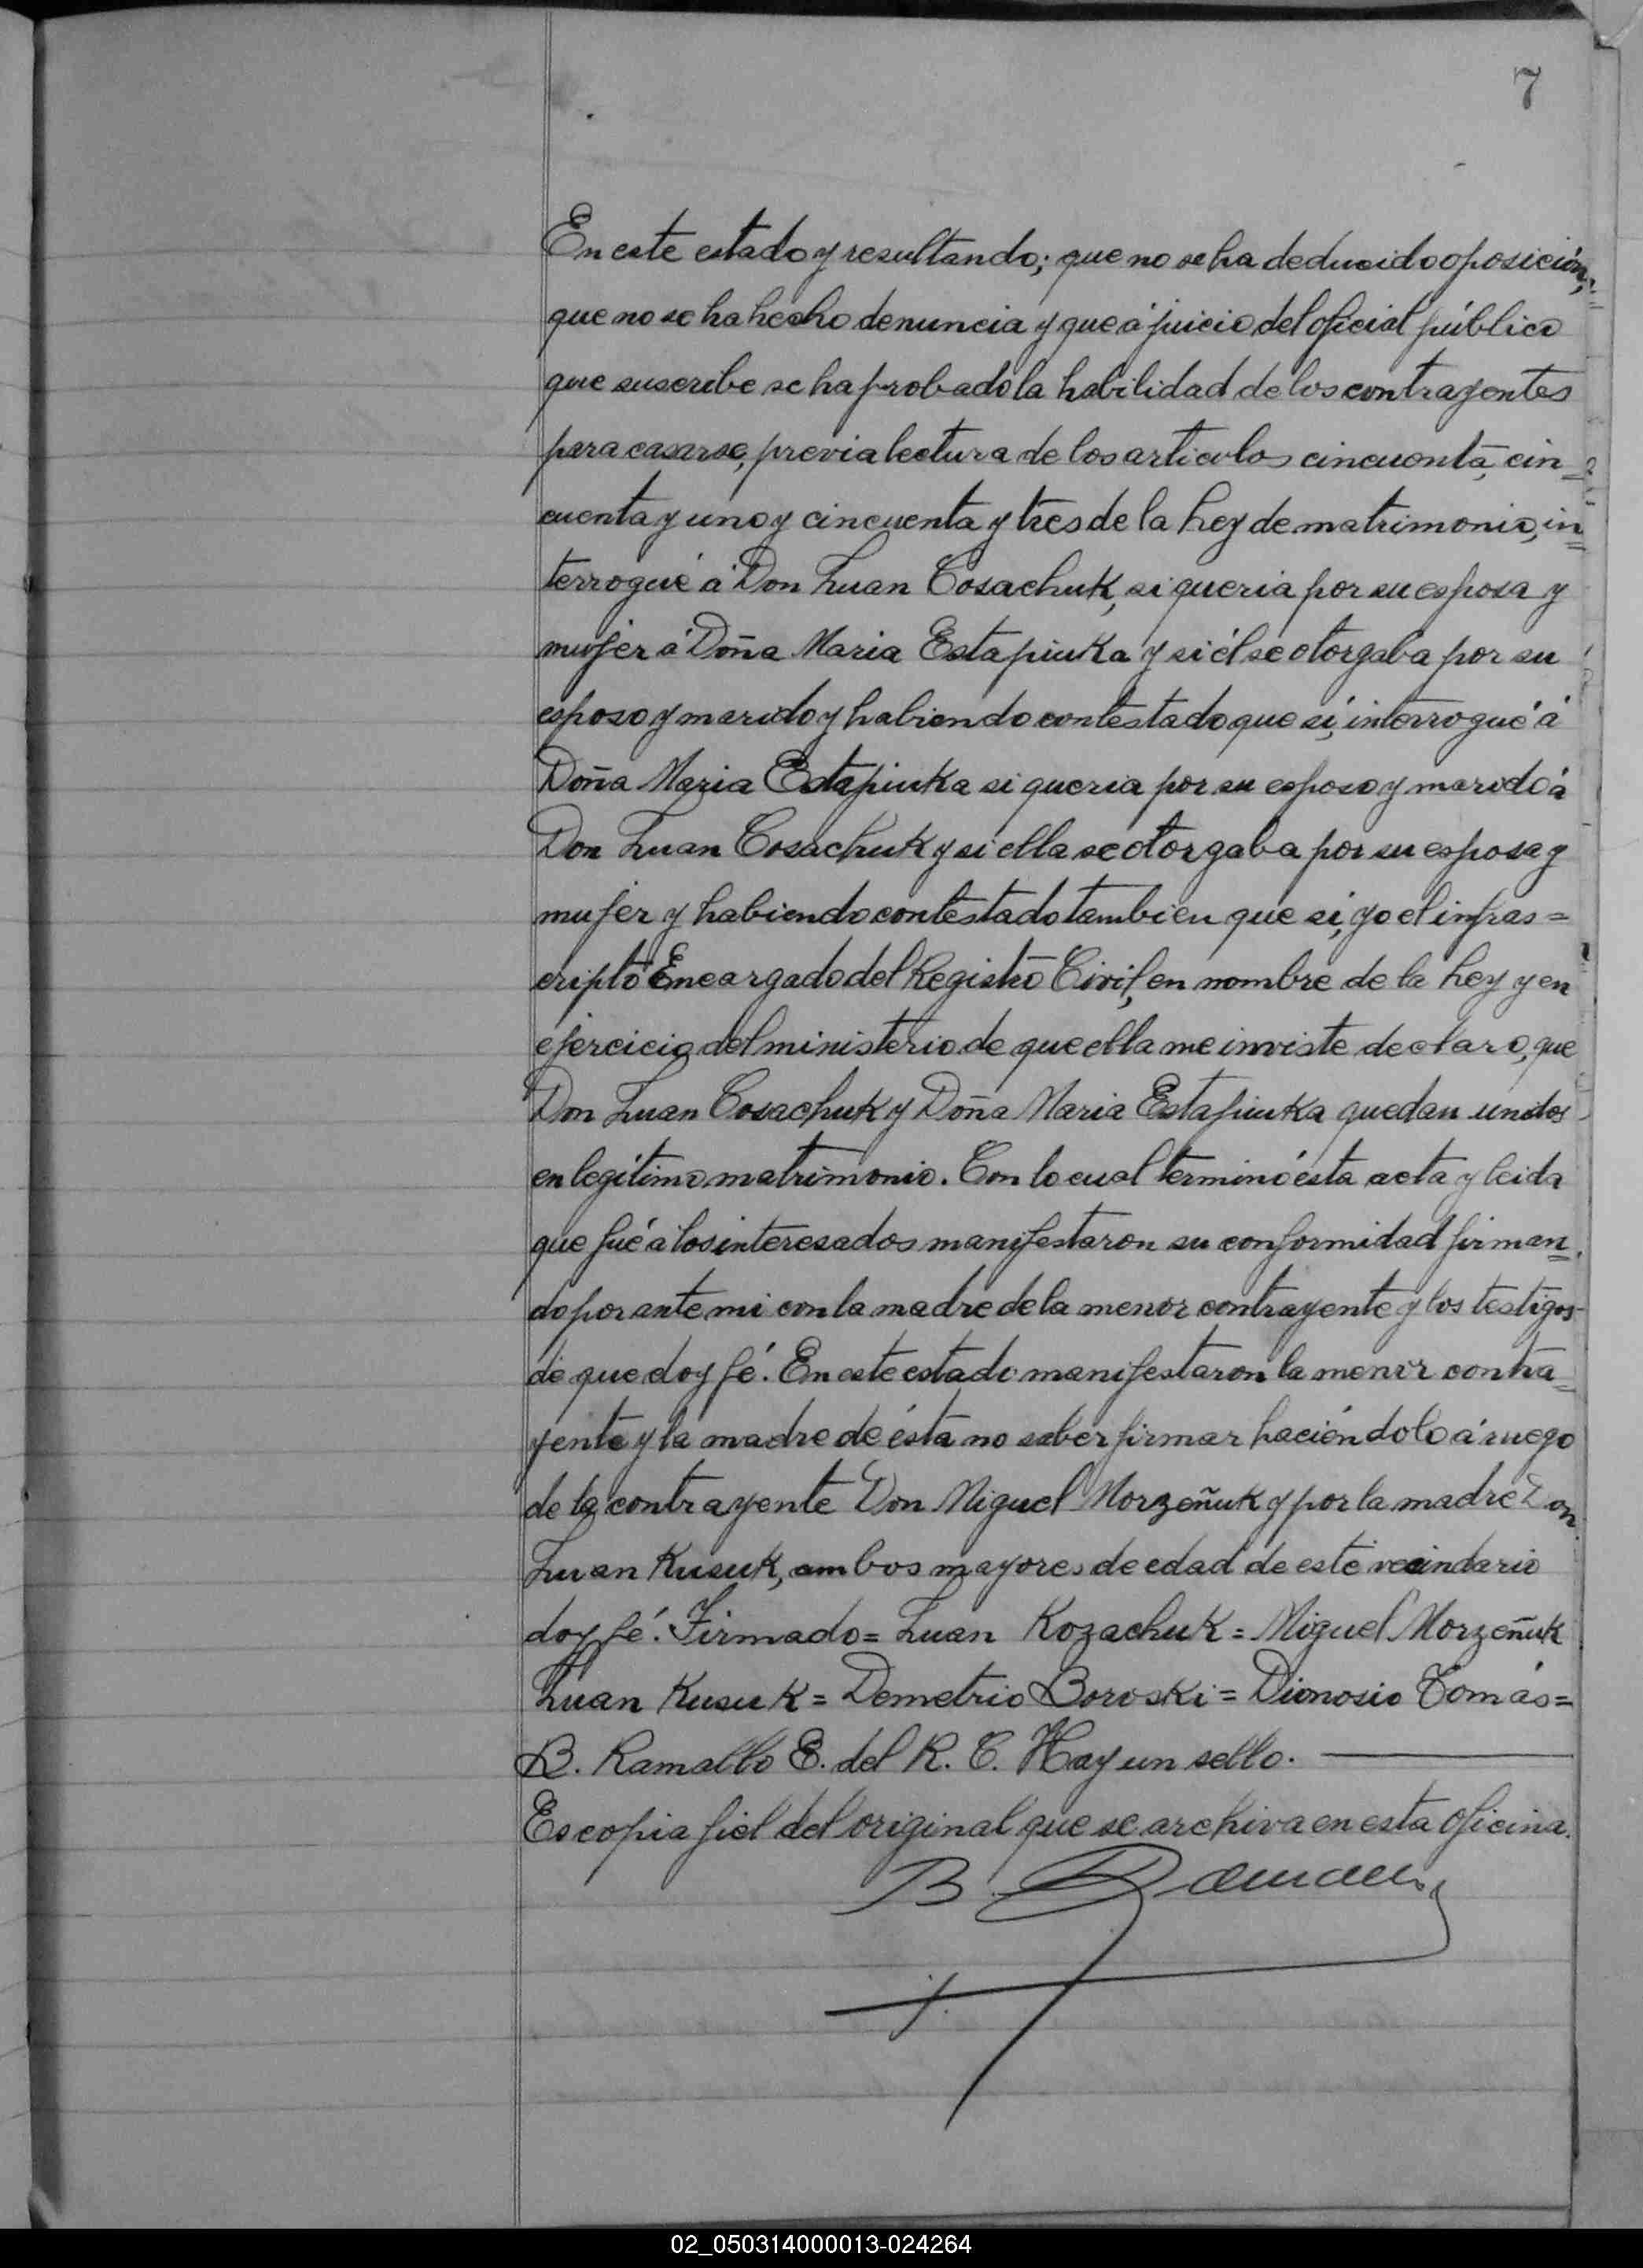 7
En este estado y resultando; que no se ha deducido oposición;
que no se ha hecho denuncia y que á juicio del oficial público
que suscribe se ha probado la habilidad de los contrayentes
para casarse, previa lectura de los articulos cincuenta, cin=
cuenta y uno y cincuenta y tres de la Ley de matrimonio, in=
terrogué á Don Juan Cosachuk, si queria por su esposa y
mujer á Doña Maria Estapiuka y si él se otorgaba por su
esposo y marido y habiendo contestado que si, interrogué á
Doña Maria Estapiuka si queria por su esposo y marido á
Don Juan Cosachuk y si ella se otorgaba por su esposa y
mujer y habiendo contestado tambien que si, yo el infras=
cripto Encargado del Registro Civil, en nombre de la Ley y en
ejercicio del ministerio de que ella me inviste declaro, que
Don Juan Cosachuk y Doña Maria Estapiuka quedan unidos
en legítimo matrimonio. Con lo cual terminó ésta acta y leida
que fué a los interesados manifestaron su conformidad firman=
do por ante mi con la madre de la menor contrayente y los testigos
de que doy fé. En este estado manifestaron la menor contra=
yente y la madre de ésta no saber firmar haciéndolo á ruego
de la contrayente Don Miguel Morzeñuk y por la madre Don
Juan Kusuk, ambos mayores de edad de este vecindario
doy fé. Firmado= Juan Kozachuk = Miguel Morzeñuk
Juan Kusuk = Demetrio Boroski = Dionosio Tomás=
B. Ramallo E. del R. C. Hay un sello.
Es copia fiel del original que se archiva en esta oficina.
B. Ramallo
02_050314000013-024264